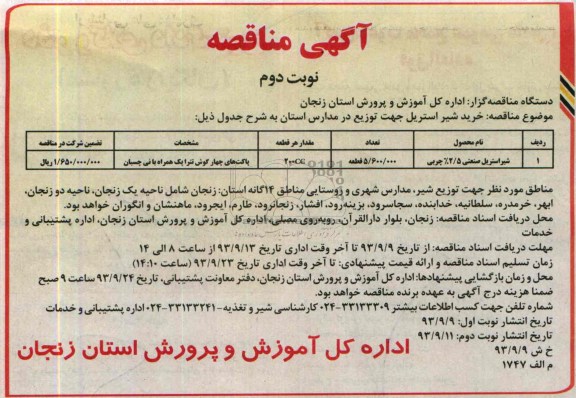 آگهی مناقصه
نوبت دوم
دستگاه مناقصه‌گزار: اداره کل آموزش و پرورش استان زنجان
موضوع مناقصه: خرید شیر استریل جهت توزیع در مدارس استان به شرح جدول ذیل:
ردیف نام محصول تعداد مقدار هر قطعه مشخصات تضمین شرکت در مناقصه
۱ شیر استریل صنعتی ۲/۵٪ چربی ۵/۶۰۰/۰۰۰ قطعه ۲۰۰cc پاکت‌های چهار گوش تتراپک همراه با نی چسبان ۱/۶۵۰/۰۰۰/۰۰۰ ریال
مناطق مورد نظر جهت توزیع شیر، مدارس شهری و روستایی مناطق ۱۴گانه استان: زنجان شامل ناحیه یک زنجان، ناحیه دو زنجان،
ابهر، خرمدره، سلطانیه، خدابنده، سجاسرود، بزینه‌رود، افشار، زنجانرود، طارم، ایجرود، ماهنشان و انگوران خواهد بود.
محل دریافت اسناد مناقصه: زنجان، بلوار دارالقرآن، روبه‌روی مصلی، اداره کل آموزش و پرورش استان زنجان، اداره پشتیبانی و
خدمات
مهلت دریافت اسناد مناقصه: از تاریخ ۹۳/۹/۹ تا آخر وقت اداری تاریخ ۹۳/۹/۱۳ از ساعت ۸ الی ۱۴
زمان تسلیم اسناد مناقصه و ارائه قیمت پیشنهادی: تا آخر وقت اداری تاریخ ۹۳/۹/۲۳ (ساعت ۱۴:۱۰)
محل و زمان بازگشایی پیشنهادها: اداره کل آموزش و پرورش استان زنجان، دفتر معاونت پشتیبانی، تاریخ ۹۳/۹/۲۴ ساعت ۹ صبح
ضمنا هزینه درج آگهی به عهده برنده مناقصه خواهد بود.
شماره تلفن جهت کسب اطلاعات بیشتر ۳۳۱۳۳۳۰۹-۰۲۴ کارشناسی شیر و تغذیه-۳۳۱۳۳۲۴۱-۰۲۴ اداره پشتیبانی و خدمات
تاریخ انتشار نوبت اول: ۹۳/۹/۹
تاریخ انتشار نوبت دوم: ۹۳/۹/۱۱
خ ش ۹۳/۹/۹
م الف ۱۷۴۷
اداره کل آموزش و پرورش استان زنجان